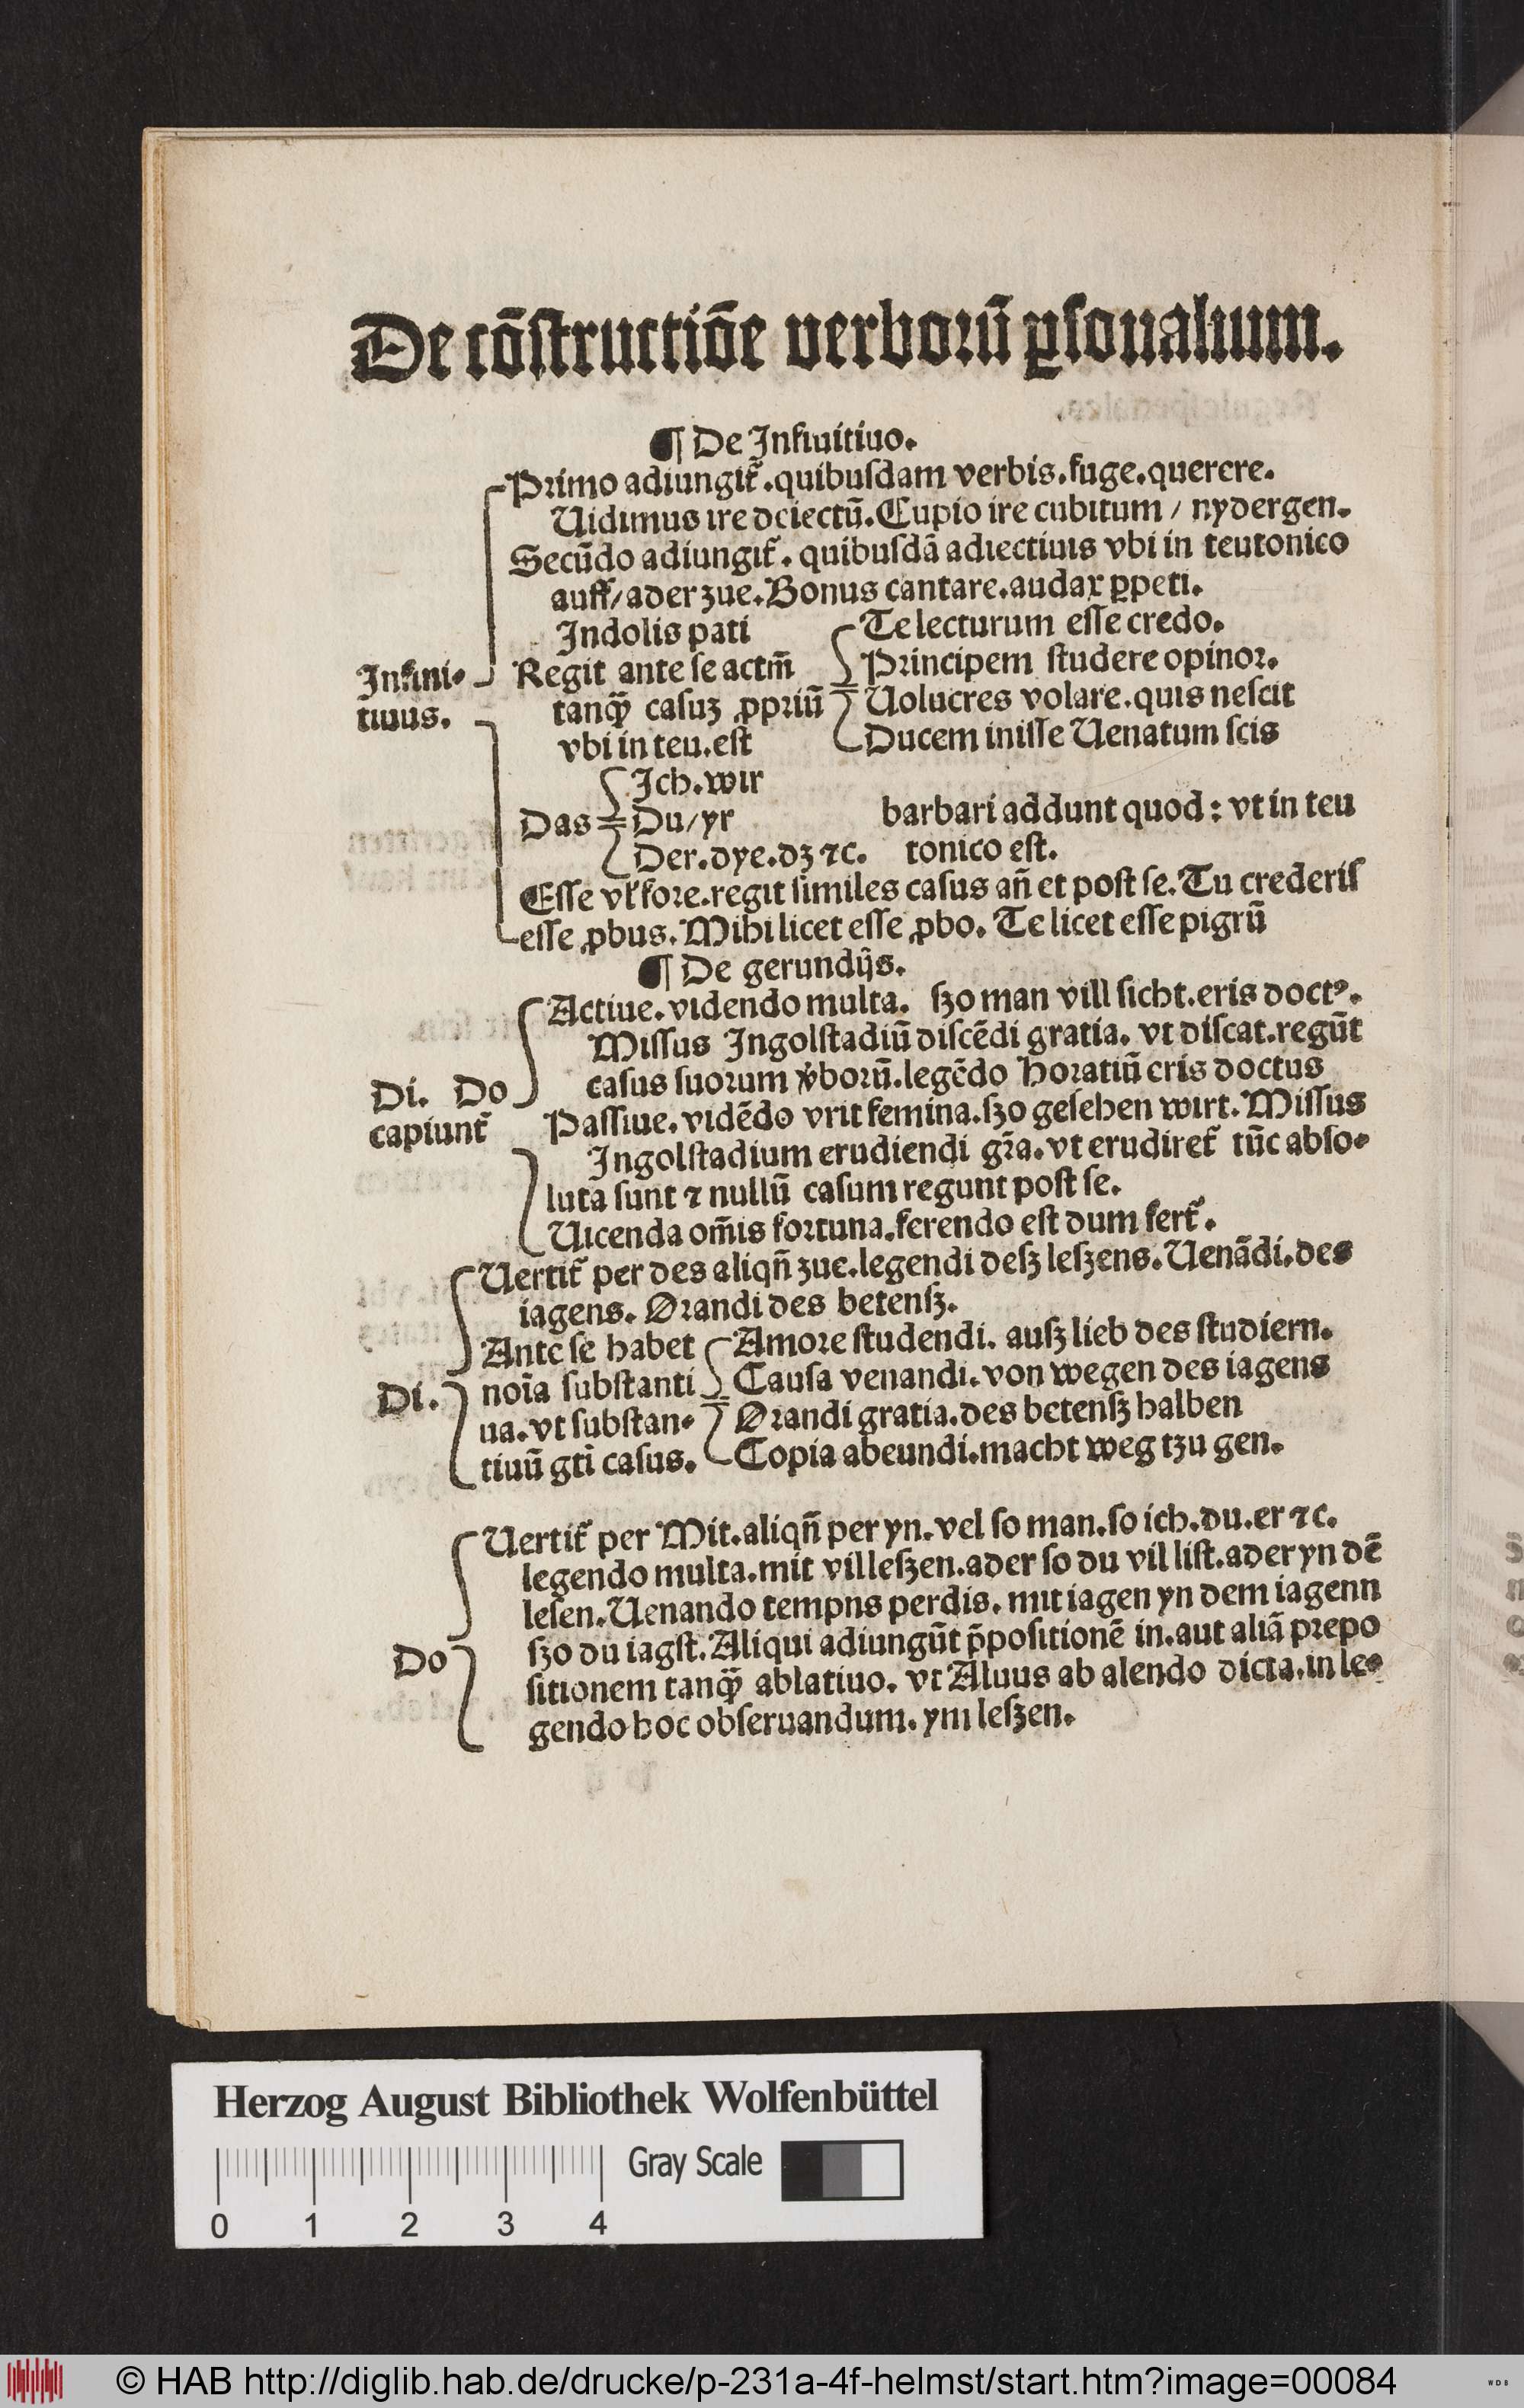 De cōſtructiōe verborū ꝑſonalium.
¶ De Infinitiuo.
Primo adiungit̃. quibuſdam verbis. fuge. querere.
Uidimus ire deiectū. Cupio ire cubitum / nydergen.
Secūdo adiungit̃. quibuſdā adiectiuis vbi in teutonico
auff / ader zue. Bonus cantare. audax ꝑpeti.
Indolis pati
Infini⸗
tiuus.
Regit ante ſe actm̄
tanqꝫ̄ caſuꝫ ꝓpriū
vbi in teu. eſt
Te lecturum eſſe credo.
Principem ſtudere opinor.
Uolucres volare. quis neſcit
Ducem iniſſe Uenatum ſcis
Das
Ich. wir
Du / yr
Der. dye. dꝫ ⁊c.
barbari addunt quod : vt in teu
tonico eſt.
Eſſe vl̓ fore. regit ſimiles caſus añ et poſt ſe. Tu crederiſ
eſſe ꝓbus. Mihi licet eſſe ꝓbo. Te licet eſſe pigrū
¶ De gerundijs.
Di. Do
capiunt̃
Actiue. videndo multa. ſzo man vill ſicht. eris doctꝰ.
Miſſus Ingolſtadiū diſcēdi gratia. vt diſcat. regūt
caſus ſuorum v̓borū. legēdo Horatiū eris doctus
Paſſiue. vidēdo vrit femina. ſzo geſehen wirt. Miſſus
Ingolſtadium erudiendi gr̄a. vt erudiret̃ tūc abſo⸗
luta ſunt ⁊ nullū caſum regunt poſt ſe.
Uicenda om̄is fortuna. ferendo eſt dum fert̃.
Di.
Uertit̃ per des aliqñ zue. legendi deſz leſzens. Uenādi. des
iagens. Orandi des betenſz.
Ante ſe habet
noīa ſubſtanti
ua. vt ſubſtan⸗
tiuū gti̇ caſus.
Amore ſtudendi. auſz lieb des ſtudiern.
Cauſa venandi. von wegen des iagens
Orandi gratia. des betenſz halben
Copia abeundi. macht weg tzu gen.
Do
Uertit̃ per Mit. aliqñ per yn. vel ſo man. ſo ich. du. er ⁊c.
legendo multa. mit vil leſzen. ader ſo du vil liſt. ader yn dē
leſen. Uenando tempns perdis. mit iagen yn dem iagenn
ſzo du iagſt. Aliqui adiungūt p̄poſitionē in. aut aliā prepo
ſitionem tanqꝫ̄ ablatiuo. vt Aluus ab alendo dicta. in le⸗
gendo hoc obſeruandum. ym leſzen.
Herzog August Bibliothek Wolfenbüttel
Gray Scale
0 1 2 3 4
© HAB http://diglib.hab.de/drucke/p-231a-4f-helmst/start.htm?image=00084
WDB